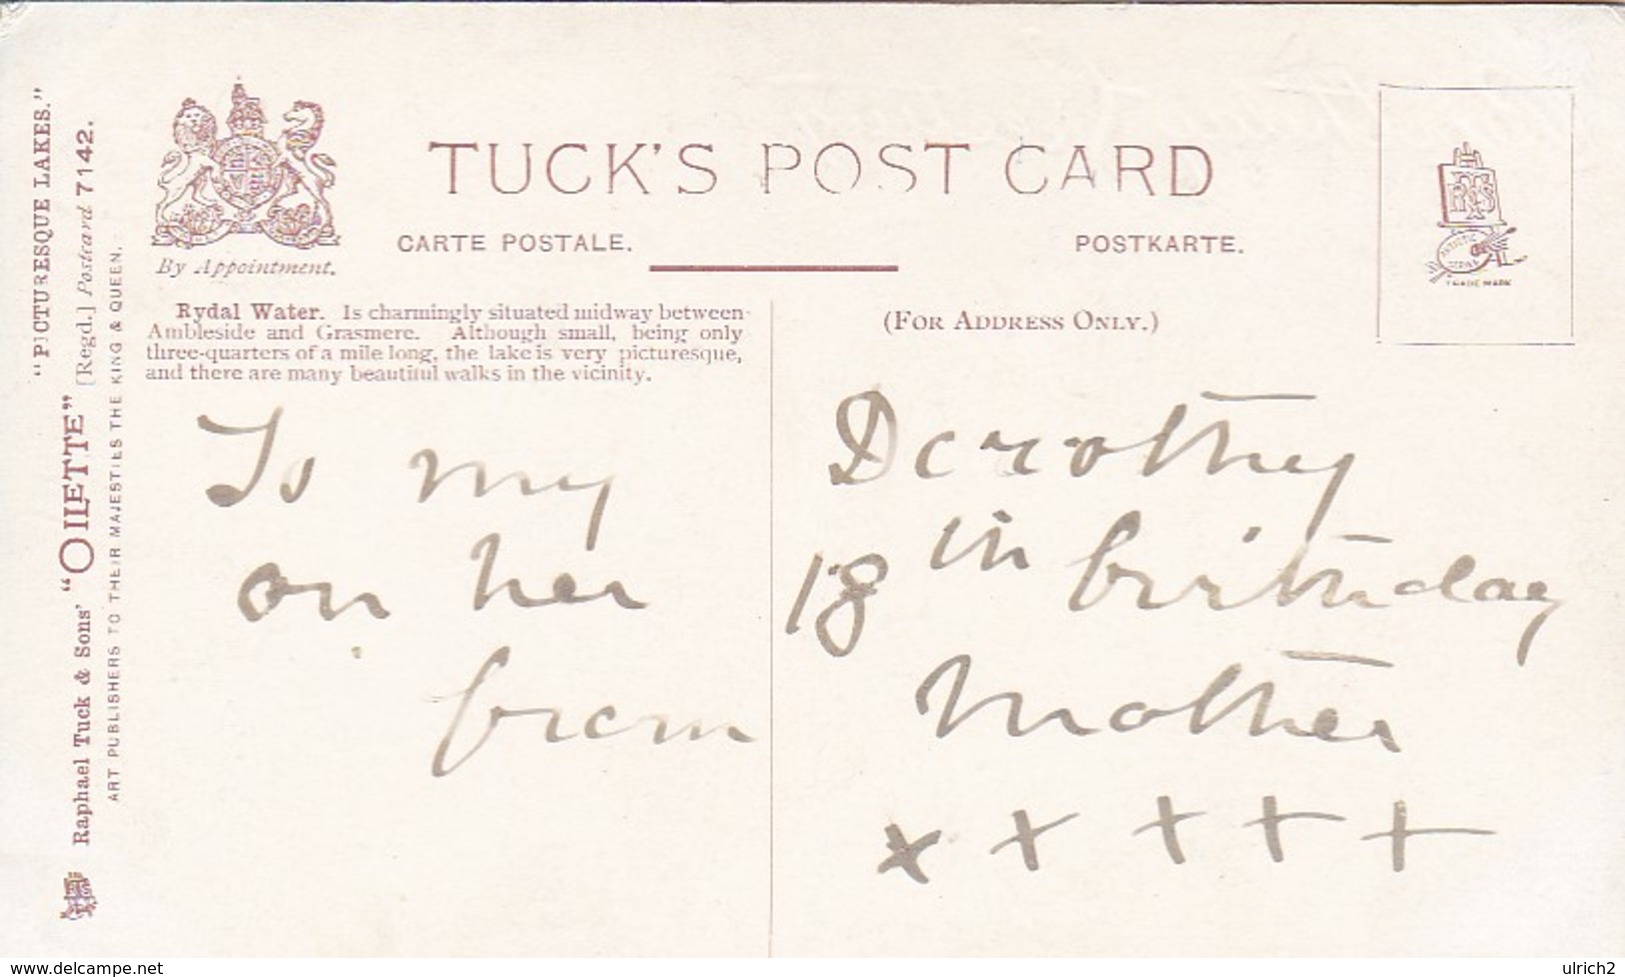 "PICTURESQUE LAKES."
Raphael Tuck & Sons' "OILETTE" [Regd.] Postcard 7142.
ART PUBLISHERS TO THEIR MAJESTIES THE KING & QUEEN.
By Appointment.
TUCK'S POST CARD
CARTE POSTALE.
POSTKARTE.
RTS
ARTISTIC SERIES
TRADE MARK
Rydal Water. Is charmingly situated midway between
Ambleside and Grasmere. Although small, being only
three-quarters of a mile long, the lake is very picturesque,
and there are many beautiful walks in the vicinity.
(FOR ADDRESS ONLY.)
To my Dorothy
on her 18th birthday
from Mother
x x x x x
www.delcampe.net
ulrich2